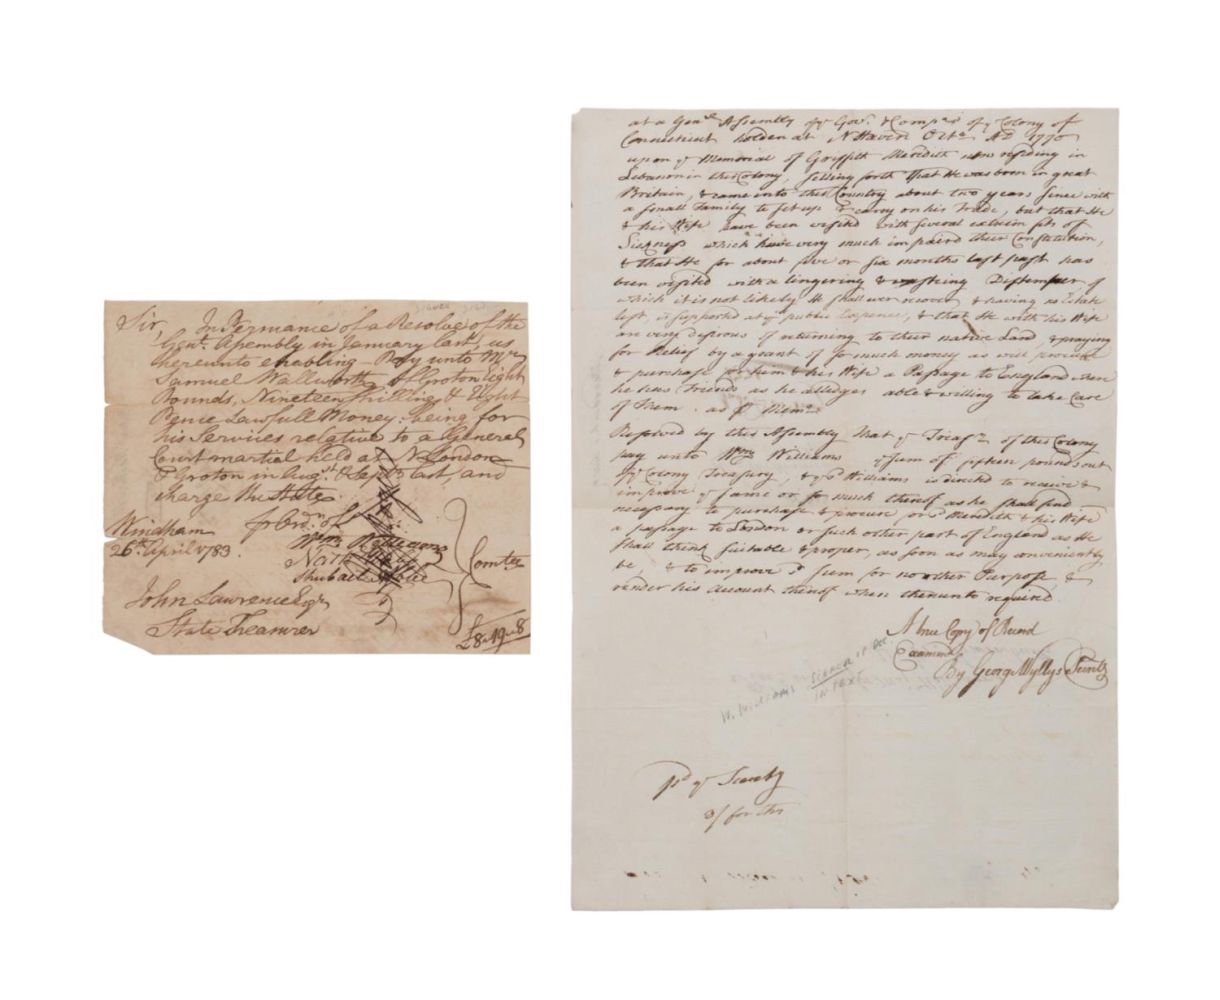 Sir, In Permance of a Resolve of the
Genll. Assembly in January last, us
hereunto enabling - Pay unto Mr
Samuel Wallworth of Groton Eight
Pounds, Nineteen shilling & Eight
Pence Lawfull Money. being for
his Services relative to a General
Court martial held at N London
& Groton in Augst. & Sept. last, and
charge the State.
Windham
26th. April 1783.
Wm Williams
Shubael Abbe
Comtee
John Lawrence Esqr
State Treasurer
£8..19..8
at a Genll Assembly of ye Govr. & Compa of ye Colony of
Connecticut holden at N Haven Octr. AD 1770
upon ye Memorial of Griffith Meredith now residing in
Lebanon in this Colony, setting forth that He was born in great
Britain, & came into this Country about two years since with
a small Family to set up & carry on his Trade, but that He
& his Wife have been visited with several extream fits of
Sickness which have very much impaird their Constitution,
& that He for about five or six months last past has
been visited with a lingering & wasting Distemper of
which it is not likely He shall ever recover & having no Estate
left, is supported at ye public Expence, & that He with his Wife
are very desirous of returning to their native Land, & praying
for Relief by a grant of so much money as will procure
& purchase for him & his Wife a Passage to England where
he has Friends as he alledges able & willing to take Care
of Them. as pr Memo.
Resolved by this Assembly that ye Treasr. of this Colony
pay unto Wm Williams ye sum of fifteen pounds out
of ye Colony Treasury, & sd Williams is directed to receive &
improve ye same or so much thereof as he shall find
necessary to purchase & procure for sd Meredith & his Wife
a passage to London or such other part of England as He
shall think suitable & proper, as soon as may conveniently
be, & to improve sd sum for no other Purpose &
render his account thereof when thereunto required.
A true Copy of Record
Examind
By George Wyllys Secretry
W. Williams signed in text
pd ye Secrety
3/ for this